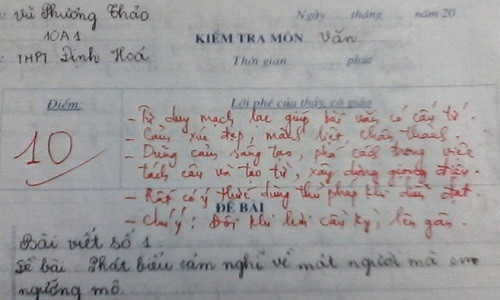 : Vũ Phương Thảo
Ngày tháng năm 20
10A1
KIỂM TRA MÔN Văn
: THPT Định Hoá
Thời gian phút
Điểm:
Lời phê của thầy, cô giáo
10
- Tư duy mạch lạc giúp bài văn có cấu tứ.
- Cảm xúc đẹp, mãnh liệt chân thành.
- Dũng cảm, sáng tạo, phá cách trong việc
tách câu và tạo từ, xây dựng giọng điệu.
- Rất có ý thức dùng thủ pháp khi diễn đạt
- Chú ý: Đôi khi hơi cầu kỳ, lên gân.
ĐỀ BÀI
Bài viết số 1
Đề bài. Phát biểu cảm nghĩ về một người mà em
ngưỡng mộ.